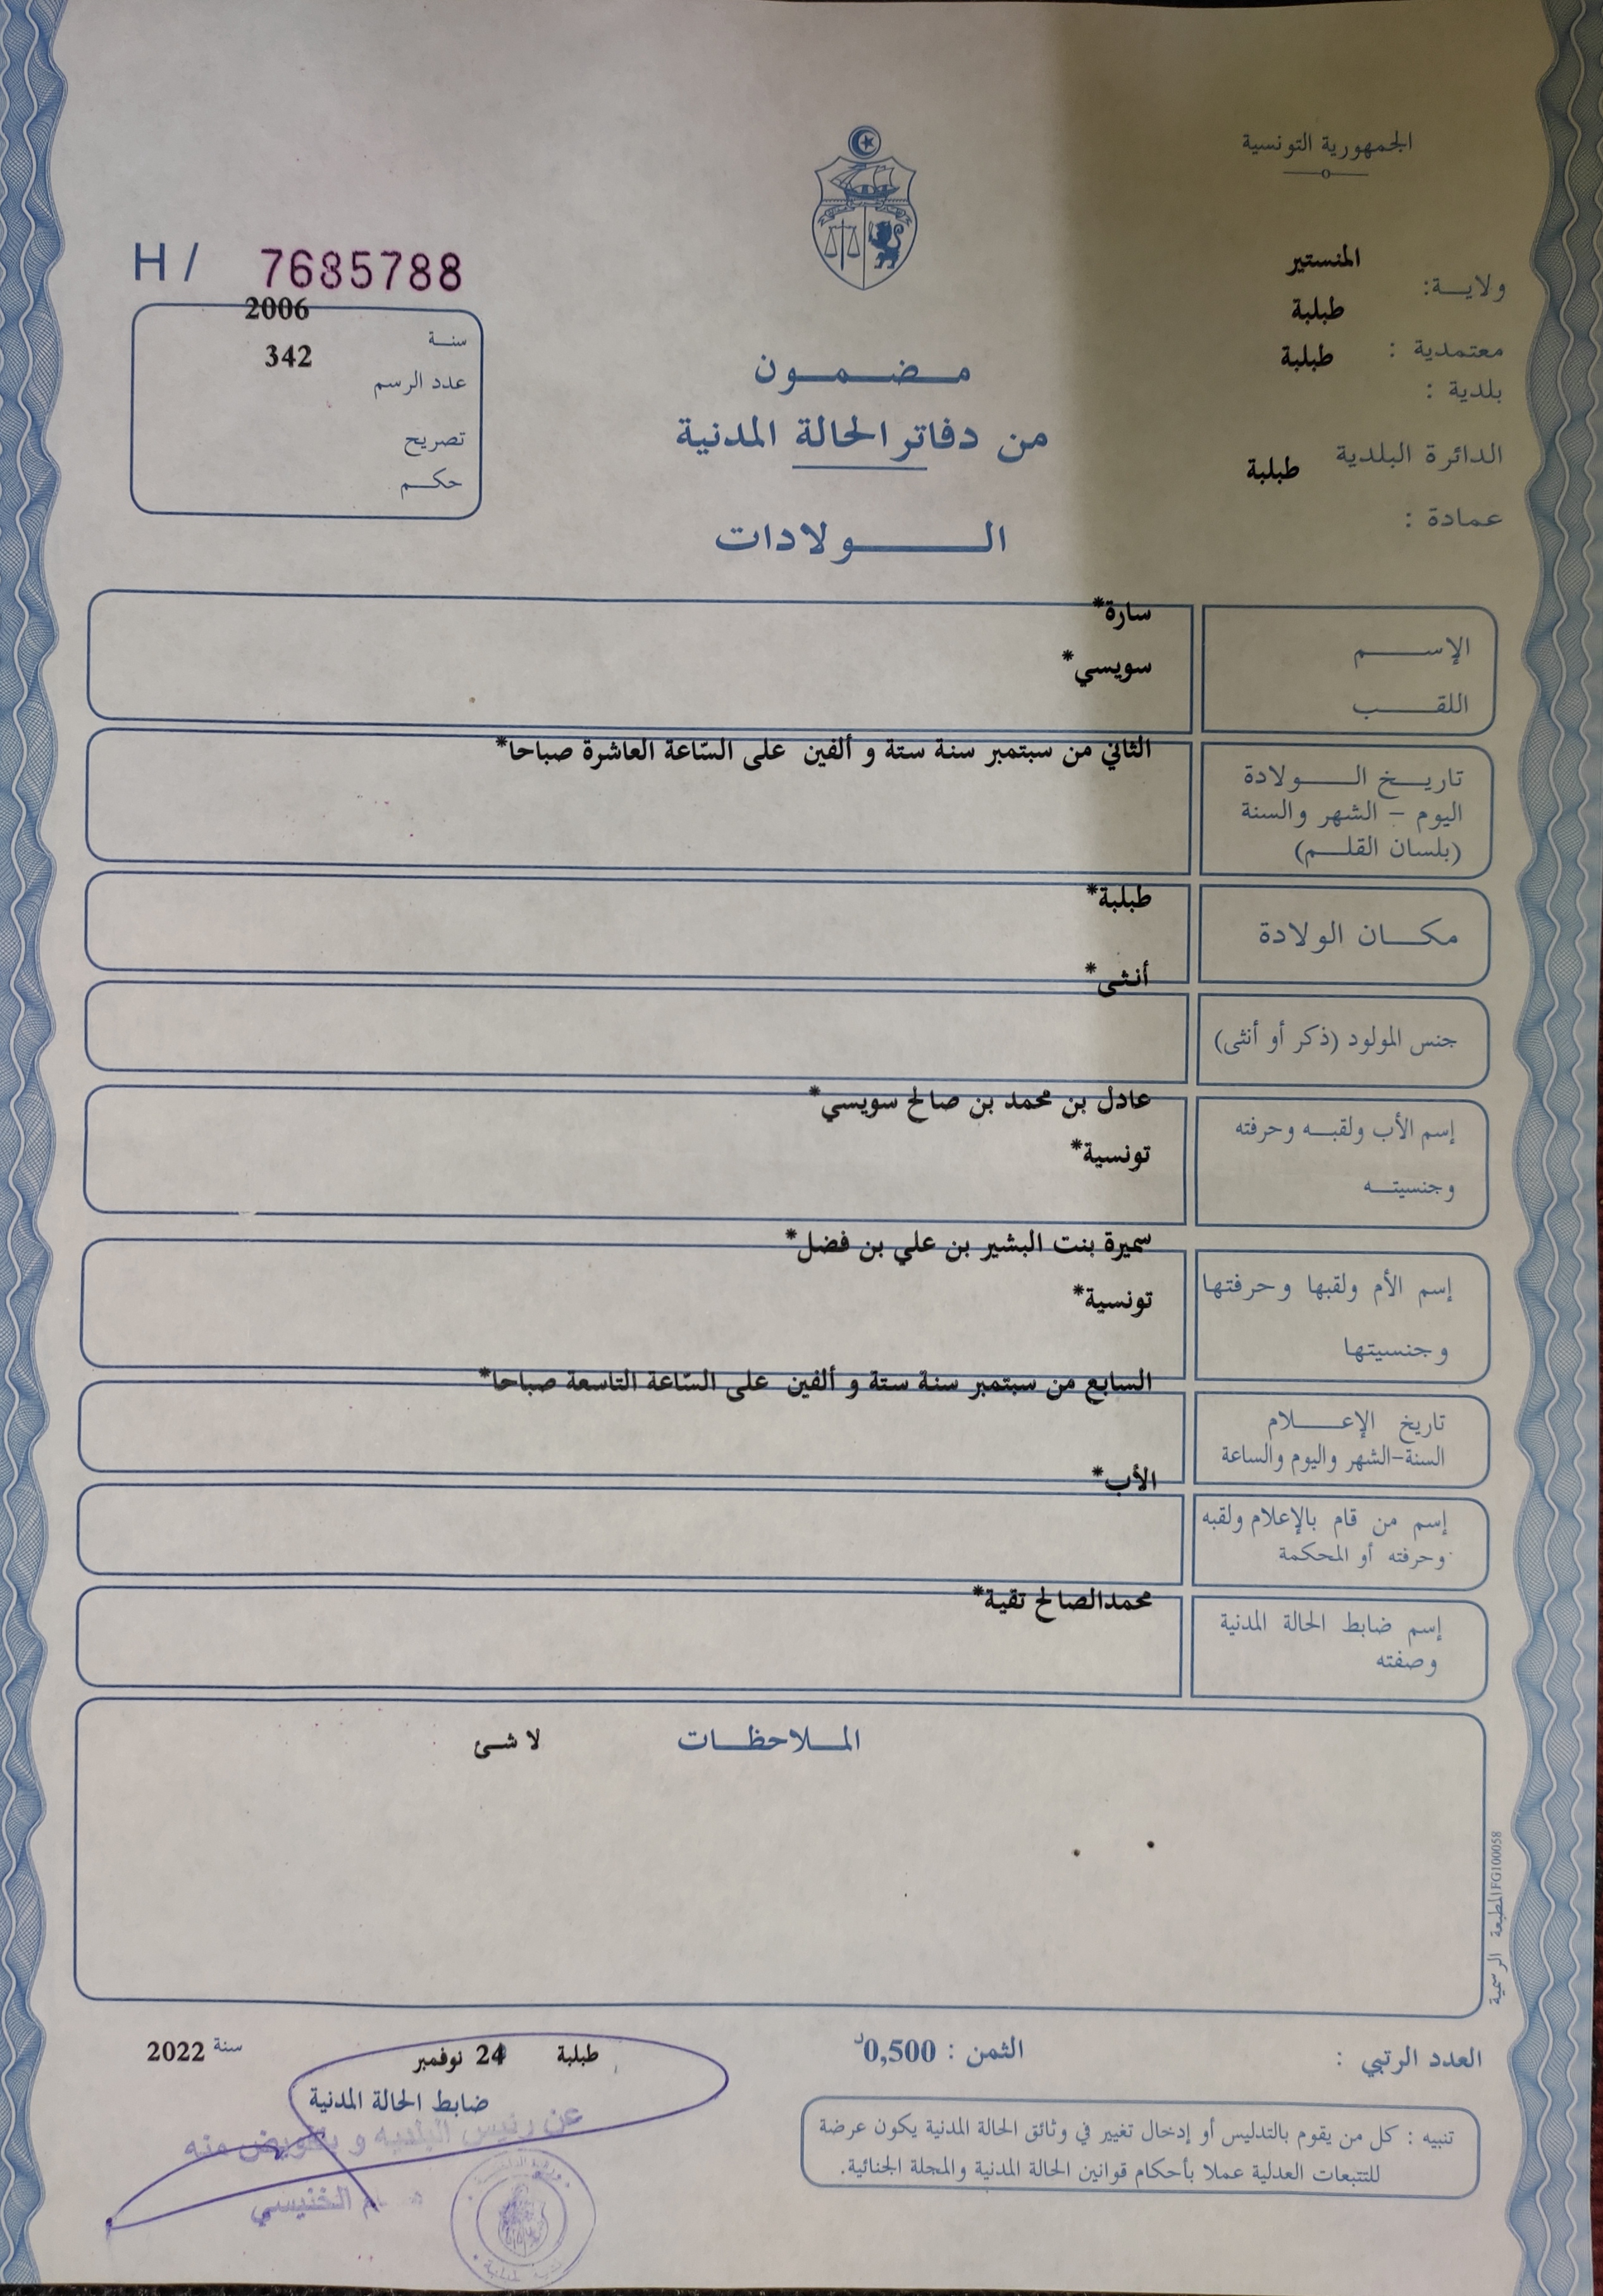 الجمهورية التونسية
ولايـــة: المنستير
معتمدية : طبلبة
بلدية : طبلبة
الدائرة البلدية طبلبة
عمادة :
H / 7685788
سنــة 2006
عدد الرسم 342
تصريح
حكــم
مـــضـــمـــون
من دفاتر الحالة المدنية
الـــــولادات
الإســـــم سارة*
اللقـــــب سويسي*
تاريـــخ الـــــولادة الثاني من سبتمبر سنة ستة و ألفين على السّاعة العاشرة صباحا*
اليوم - الشهر والسنة
(بلسان القلـــم)
مكـــان الولادة طبلبة*
جنس المولود (ذكر أو أنثى) أنثى*
إسم الأب ولقبــه وحرفته عادل بن محمد بن صالح سويسي*
وجنسيتــه تونسية*
إسم الأم ولقبها وحرفتها سميرة بنت البشير بن علي بن فضل*
وجنسيتها تونسية*
تاريخ الإعـــــلام السابع من سبتمبر سنة ستة و ألفين على السّاعة التاسعة صباحا*
السنة-الشهر واليوم والساعة
إسم من قام بالإعلام ولقبه الأب*
وحرفته أو المحكمة
إسم ضابط الحالة المدنية محمدالصالح تقية*
وصفته
المـــلاحظـــات لا شئ
المطبعة الرسمية IFG100058
العدد الرتبي :
الثمن : 0,500د
طبلبة 24 نوفمبر سنة 2022
ضابط الحالة المدنية
عن رئيس البلدية و بتفويض منه
الخنيسي
تنبيه : كل من يقوم بالتدليس أو إدخال تغيير في وثائق الحالة المدنية يكون عرضة
للتتبعات العدلية عملا بأحكام قوانين الحالة المدنية والمجلة الجنائية.